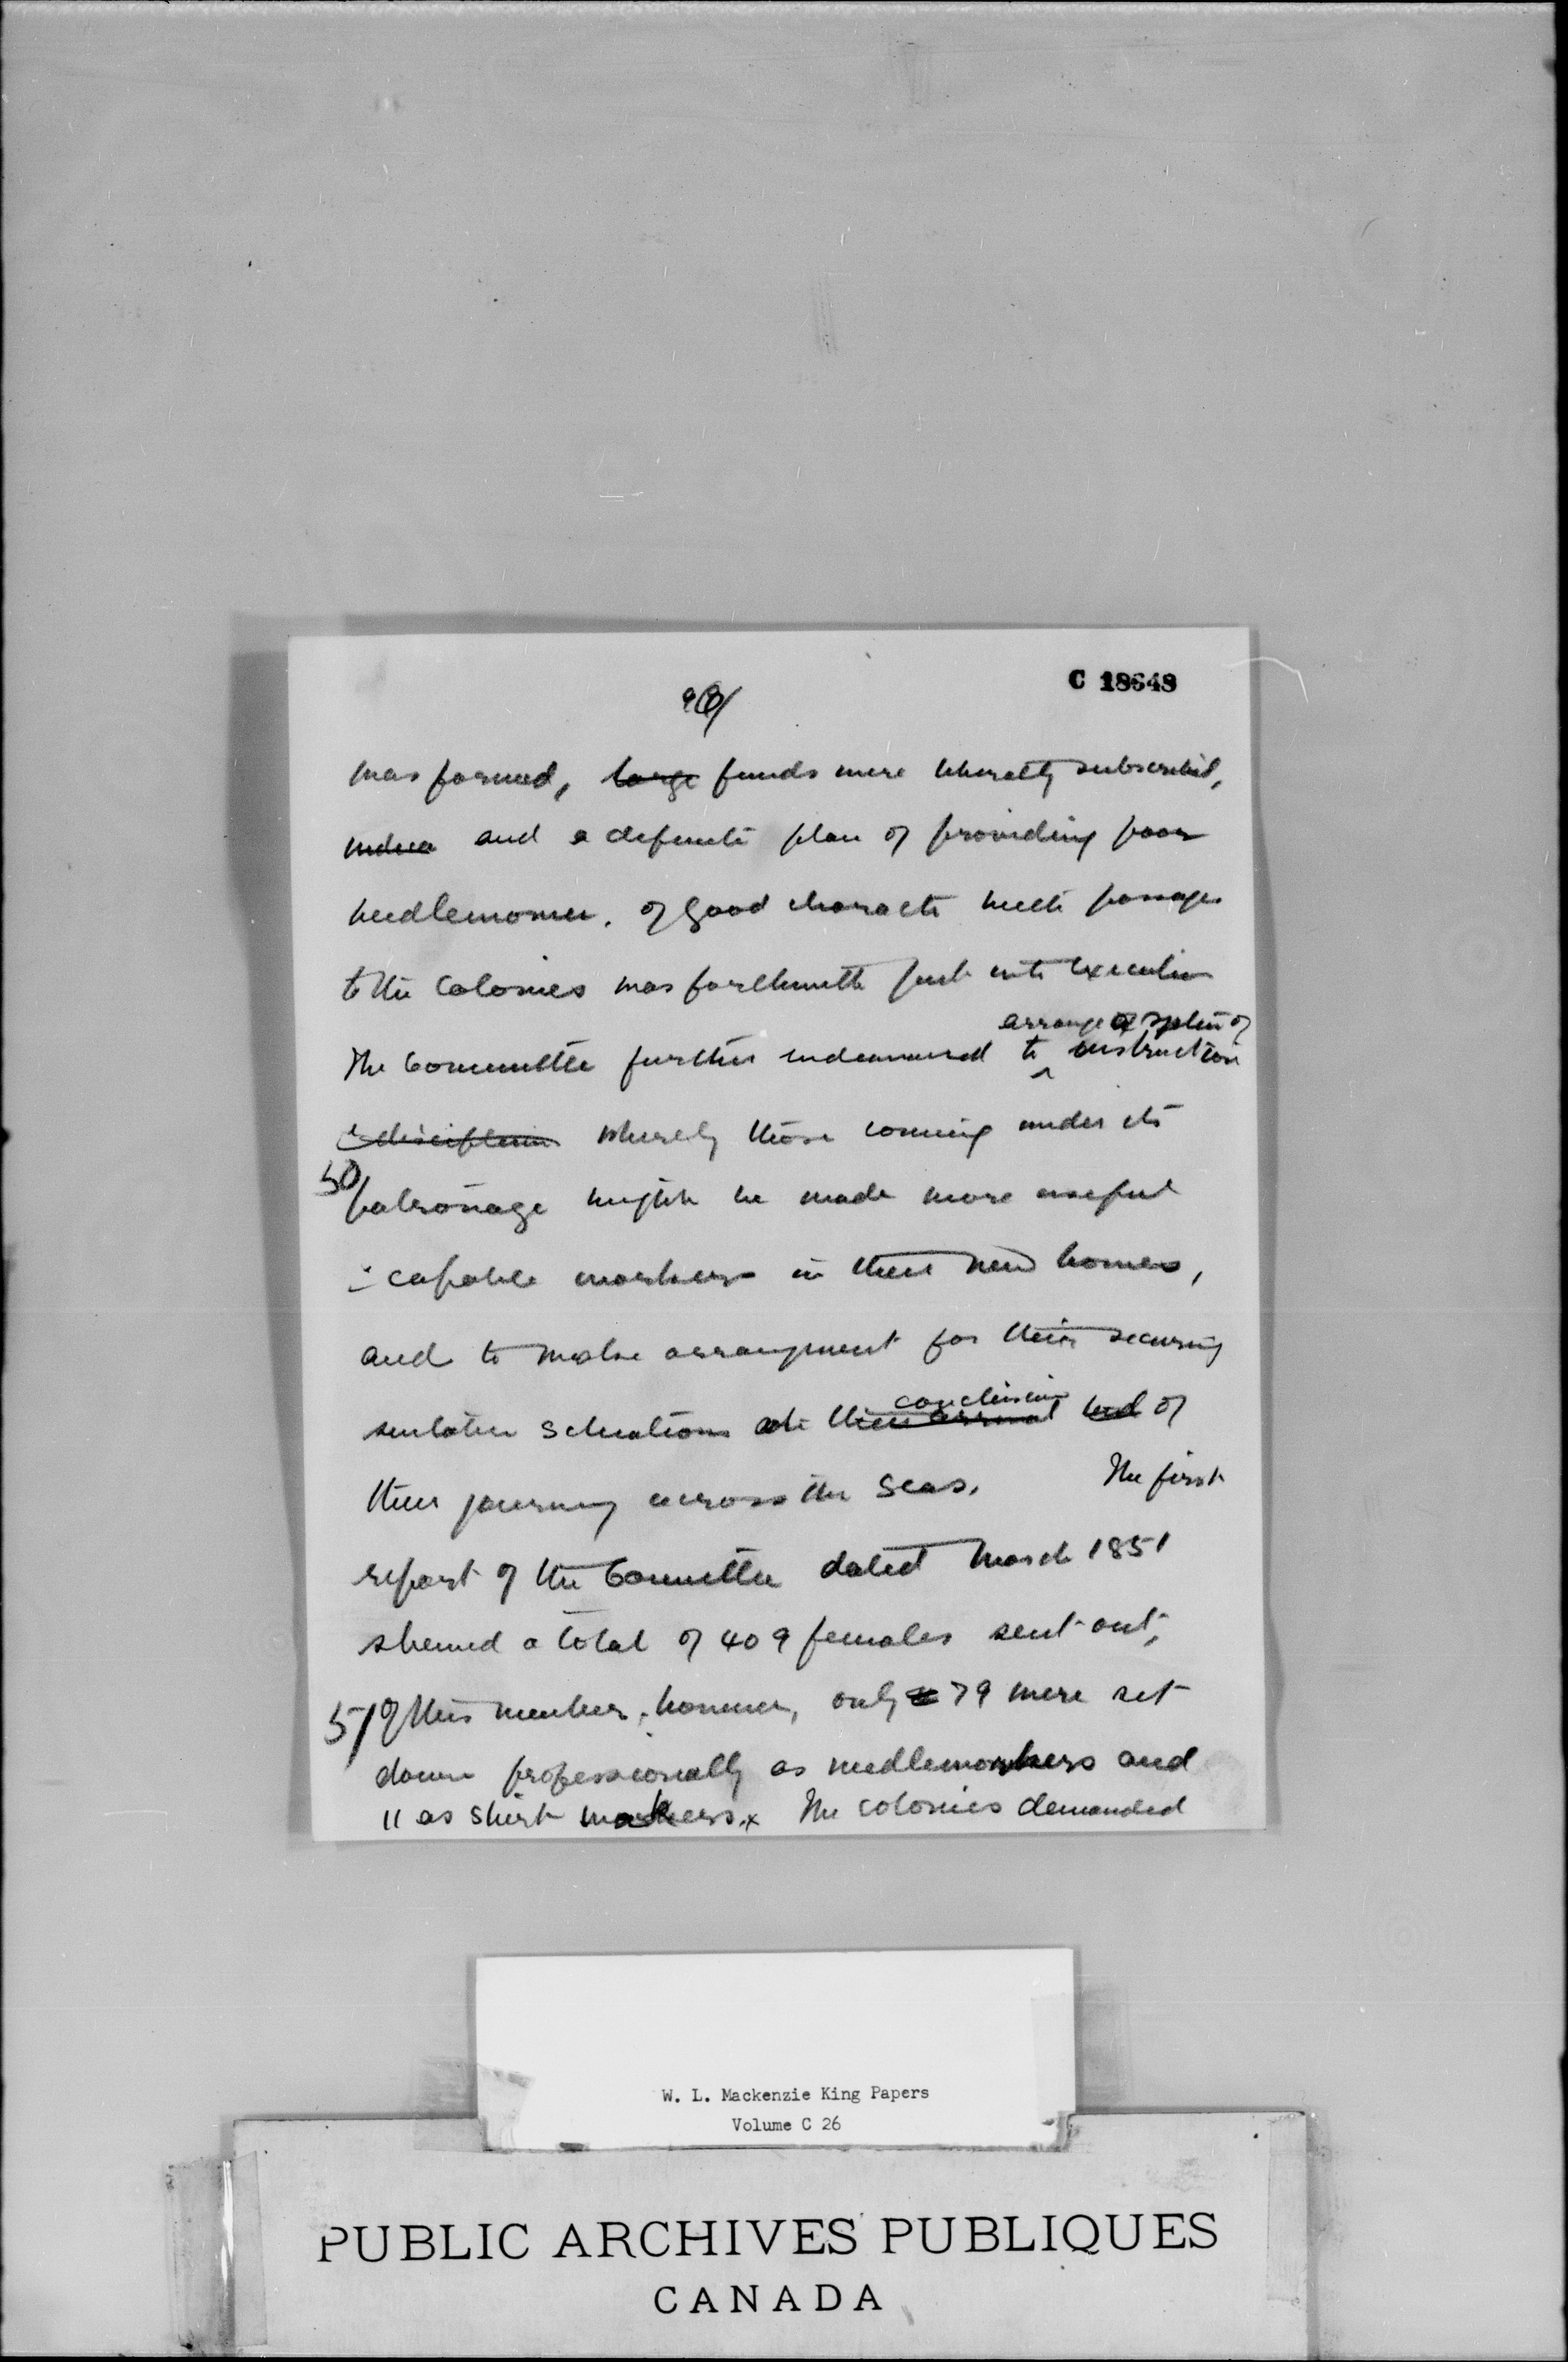 C 18648
was formed, large funds were liberally subscribed,
and a definite plan of providing poor
needlewomen. of good character with passages
to the Colonies was forthwith put into execution
arrange a system of
The Committee further endeavoured to ^ instruction
& discipline whereby those coming under its
50/ patronage might be made more useful
& capable workers in their new homes,
and to make arrangement for their securing
conclusion
suitable situations at their arrival end of
their journey across the seas. The first
report of the Committee dated March 1851
shewed a total of 409 females sent out,
51/ Of this number, however, only 79 were set
down professionally as needleworkers and
11 as shirt makers.x The colonies demanded
W. L. Mackenzie King Papers
Volume C 26
PUBLIC ARCHIVES PUBLIQUES
CANADA